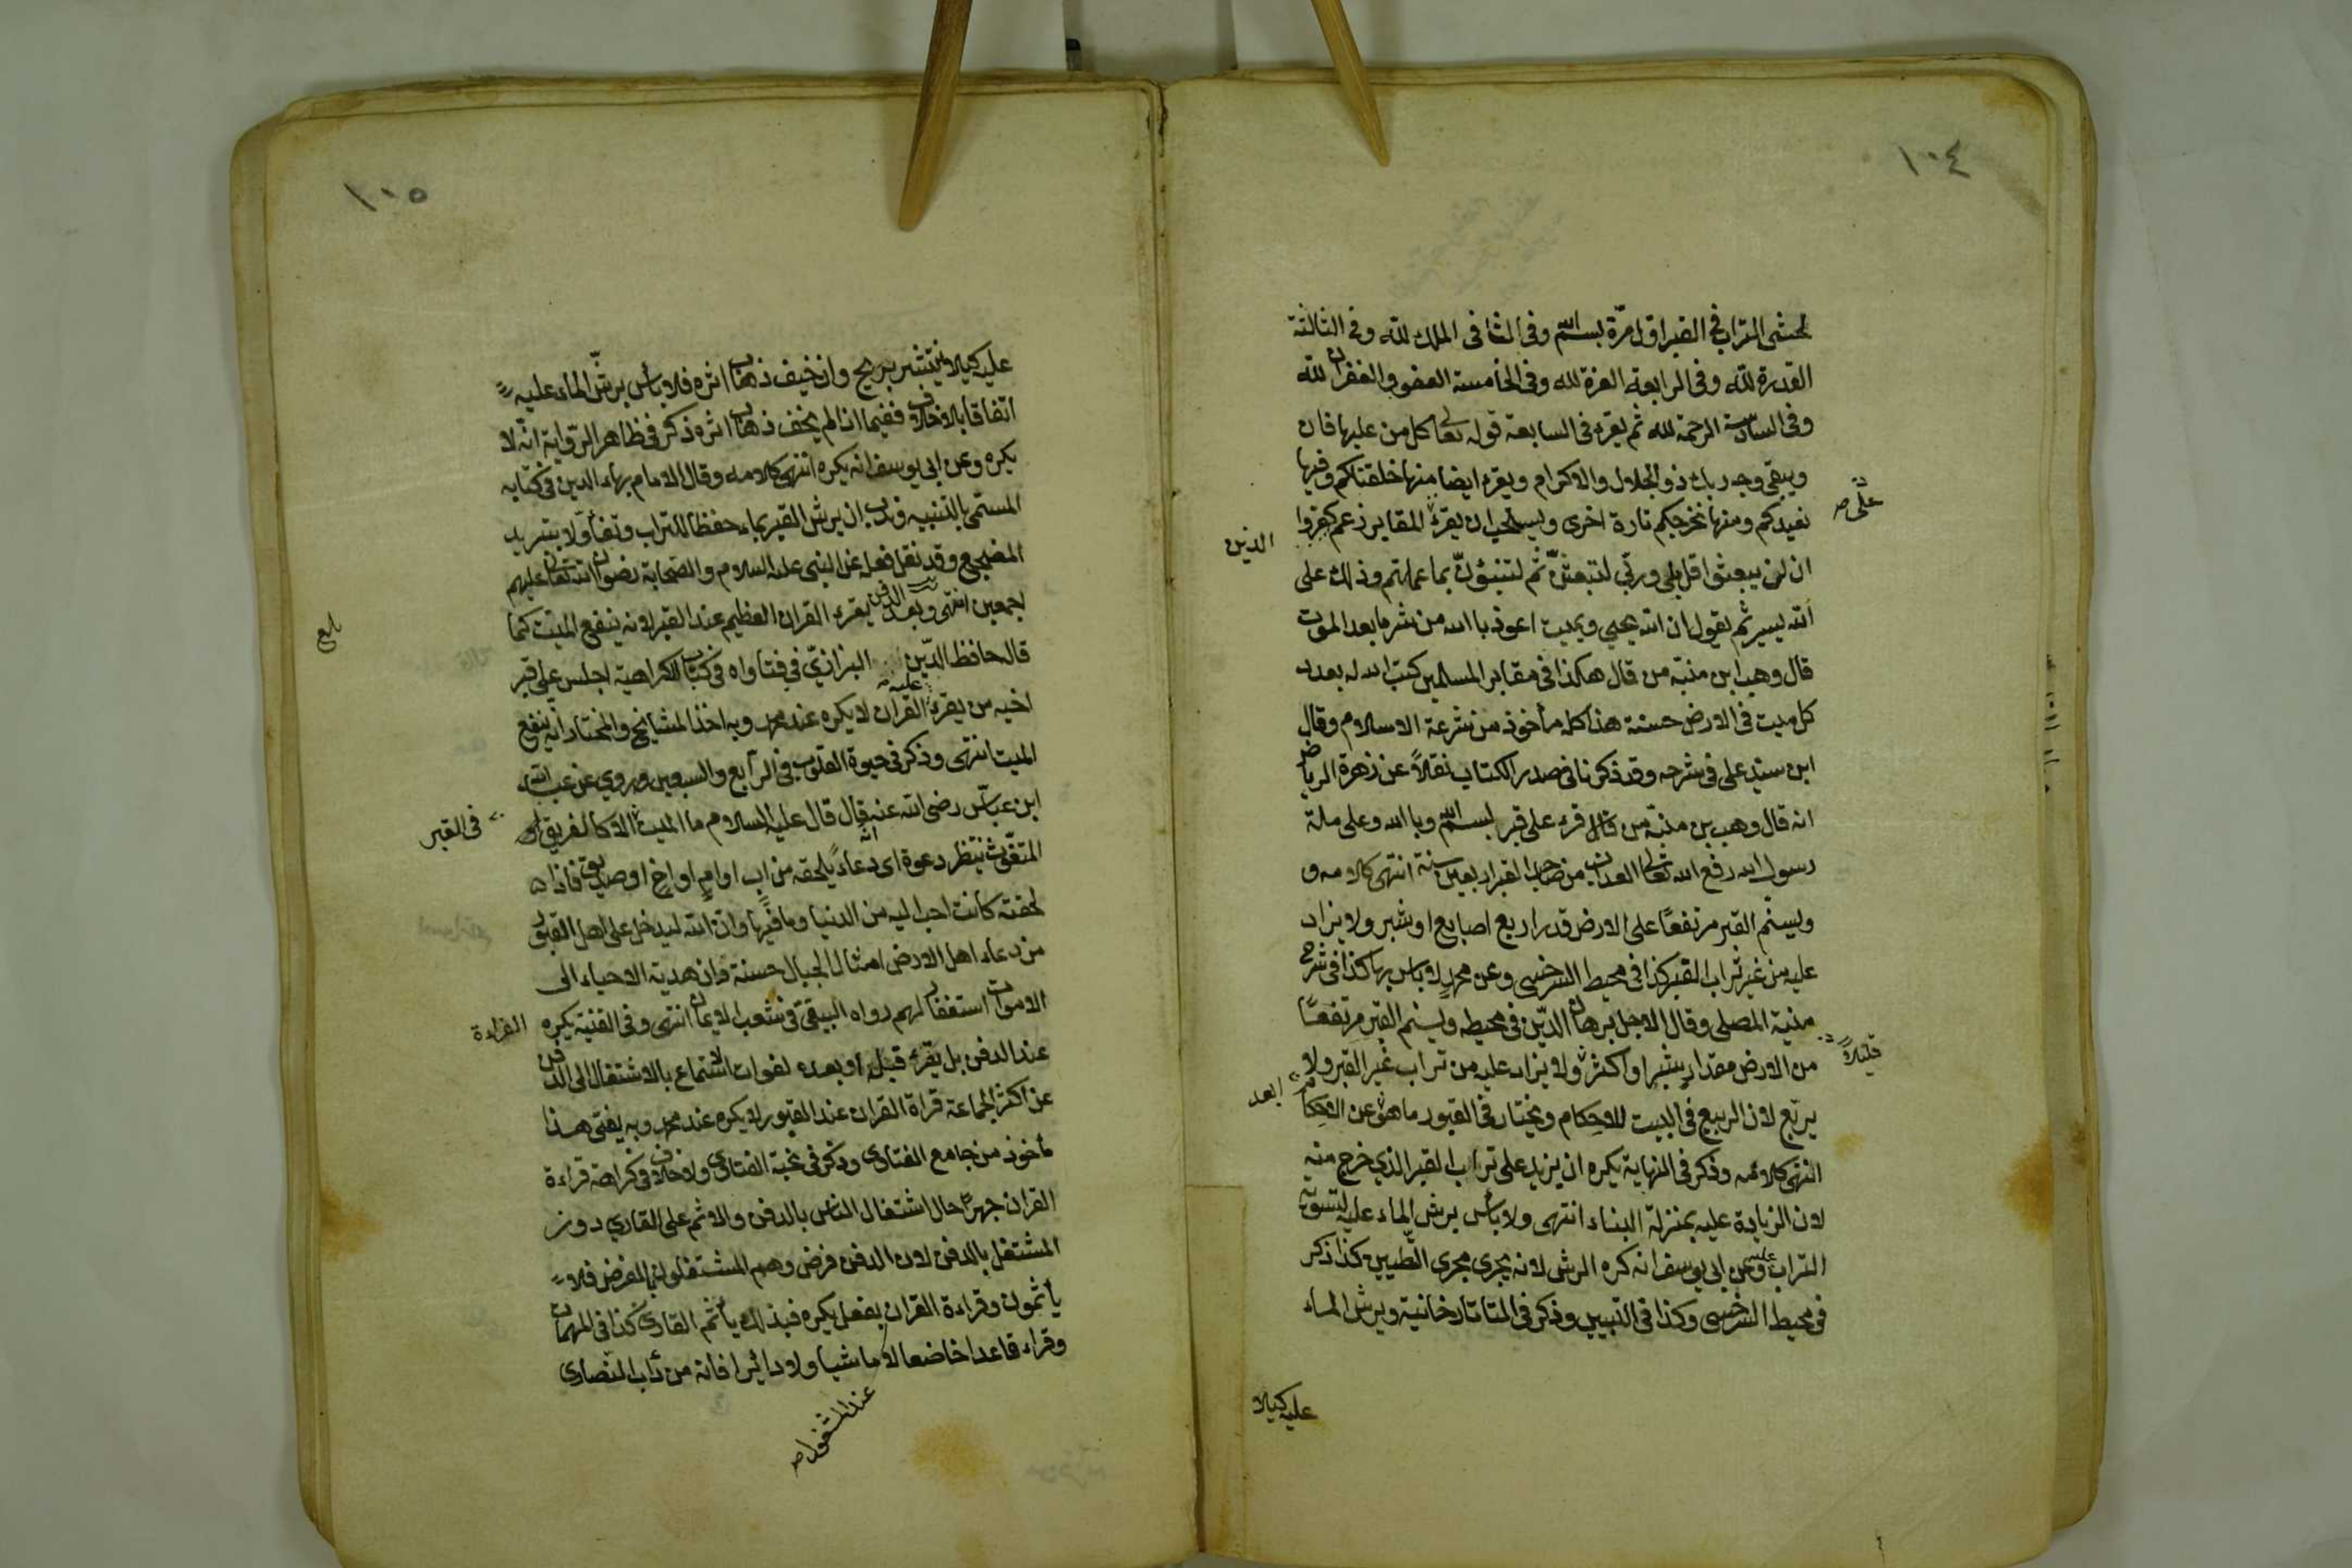 ١٠٤
لحثى التراب في القبر اول مرّة بسم الله وفى الثانى الملك لله وفى الثالثة
القدرة لله وفى الرابعة العزة لله وفى الخامسة العفو والغفران لله
وفى السّادسة الرحمة لله ثم يقرء فى السابعة قوله تعالى كل من عليها فان
ويبقى وجه ربك ذو الجلال والاكرام ويقرء ايضا منها خلقناكم وفيها
نعيدكم ومنها نخرجكم تارة اخرى ويستحب ان يقرء المقابر زعم كفروا
على صح
الذين
ان لن يبعثوا قل بلى وربّي لتبعثنّ ثم لتنبؤنّ بما عملتم وذلك على
الله يسير ثم يقول ان الله يحيي ويميت اعوذ بالله من شر ما بعد الموت
قال وهب ابن منبّه من قال هكذا فى مقابر المسلمين كتب الله له بعدد
كل ميت فى الارض حسنة هذا كله مأخوذ من شرعة الاسلام وقال
ابن سيد على فى شرحه وقد ذكرنا فى صدر الكتاب نقلاً عن زهرة الرياض
انه قال وهب بن منبّه من قال قرء على قبر بسم الله وبالله وعلى ملة
رسول الله رفع الله تعالى العذاب من صاحب القبر اربعين سنة انتهى كلامه و
ويسنّم القبر مرتفعًا على الارض قدر اربع اصابع او شبر ولا يزاد
عليه من غير تراب القبر كذا فى محيط السرخسى وعن محمدٍ لا بأس بها كذا فى شرح
منية المصلى وقال الاجل برهان الدّين فى محيطه ويسنم القبر مرتفعًا
من الارض مقدار شبر او اكثر ولا يزاد عليه من تراب غير القبر ولا
قليلاً
يربّع لان الربيع فى البيت للاحكام ويختار فى القبور ما هو عن الاحكام
ابعد
انتهى كلامه وذكر فى النهاية يكره ان يزيد على تراب القبر الذي خرج منه
لان الزيادة عليه بمنزلة البناء انتهى ولا بأس برش الماء عليه لتسوية
التراب عليه وعن ابى يوسف انه كره الرش لانه يجرى مجرى التّطيين كذا ذكر
فى محيط السرخسى وكذا فى التبيين وذكر فى التاتارخانية ويرش الماء
عليه كيلا
١٠٥
عليه كيلا ينتشر بريح وان خيف ذهاب اثره فلا بأس برشّ الماء عليه
اتفاقا بلا خلاف ففيما اذا لم يخف ذهاب اثره ذكر فى ظاهر الرّواية انّه لا
يكره وعن ابى يوسف انه يكره انتهى كلامه وقال الامام بهاء الدين فى كتابه
المسمّى بالتنبيه وندب ان يرش القبر بماء حفظا للتراب وتفأّولا بتبريد
المضجع وقد نقل فعله عن النبى عليه السلام والصحابة رضوان الله تعالى عليهم
اجمعين انتهى وبعد الدفن يقرء القران العظيم عند القبر لانه ينفع الميّت كما
قاله حافظ الدّين البزازيّ في فتاواه فى كتاب الكراهية اجلس على قبر
اخيه من يقرء عليه القران لا يكره عند محمد وبه اخذ المشايخ والمختار انه ينفع
الميت انتهى وذكر فى حيوة القلوب فى الرّابع والسبعين وروي عن عبد الله
ابن عبّاس رضى الله عنه انه قال قال عليه السلام ما الميت الا كالغريق او
فى القبر
المتغوّث ينتظر دعوة اى دعاء يلحقه من اب او امٍ او اخٍ او صديق فاذا
لحقته كانت احب اليه من الدنيا وما فيها وان الله ليدخل على اهل القبور
من دعاء اهل الارض امثال الجبال حسنة وان هدية الاحياء الى
الاموات استغفار لهم رواه البيهقى فى شعب الايمان انتهى وفى القنية يكره
القراءة
عند الدفن بل يقرء قبله او بعده لفوات الاستماع بالاشتغال الى الدفن
عن اكثر الجماعة قراة القران عند القبور لا يكره عند محمد وبه يفتى هذا
مأخوذ من جامع الفتاوى وذكر فى نخبة الفتاوى ولا خلاف فى كراهة قراءة
القران جهرًا حال اشتغال الناس بالدفن والاثم على القاري دون
المشتغل بالدفن لان الدفن فرض وهم المشتغلون بالفرض فلا
يأثمون وقراءة القران بفعل يكره فبذلك يأثم القارى كذا فى المهمات
وقراء قاعدا خاضعا لا ماشيا ولا دائرا فانه من دأب النصارى
عند المشغول صح